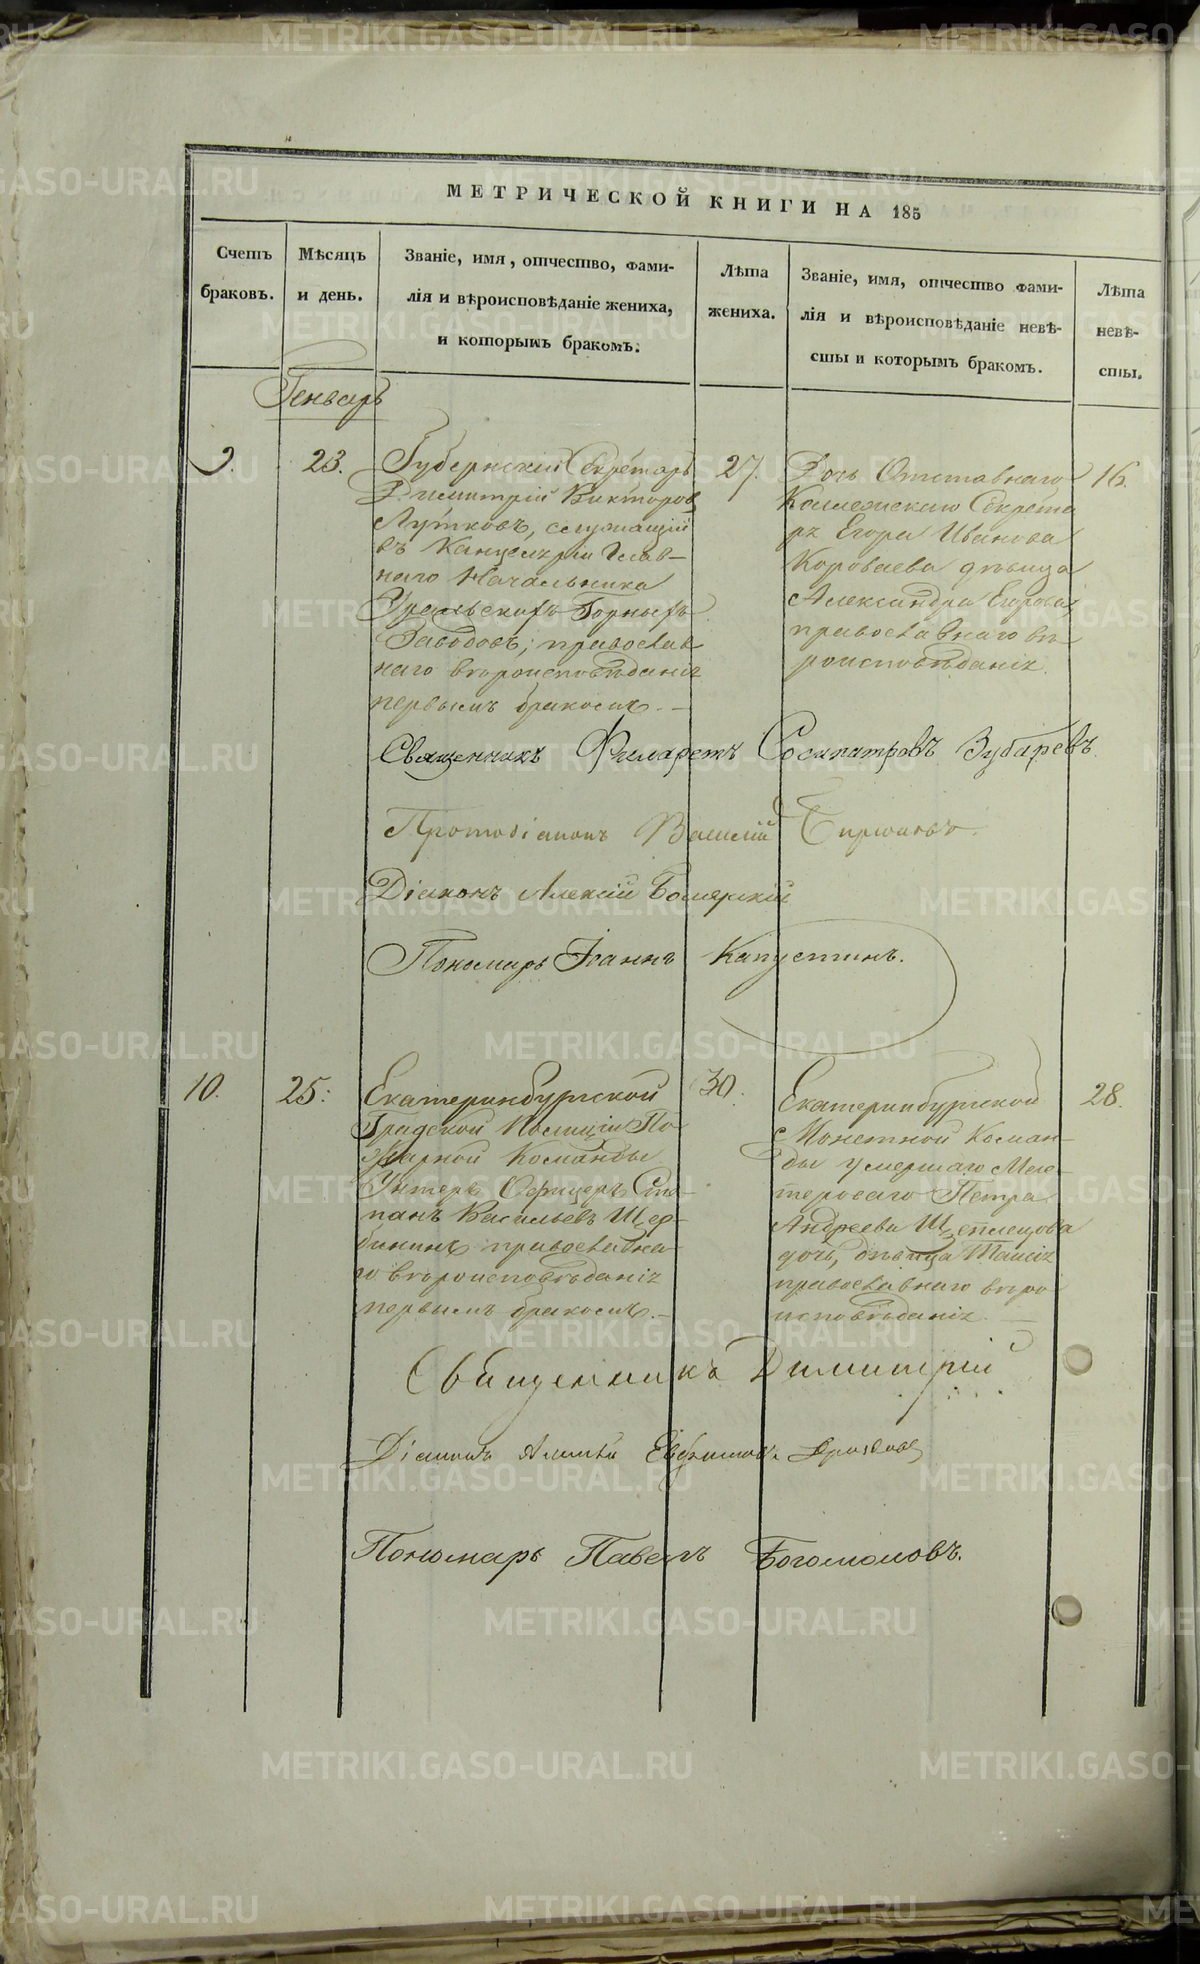 МЕТРИЧЕСКОЙ КНИГИ НА 185
Счетъ
браковъ.
Мѣсяцъ
и день.
Званіе, имя, отчество, фами-
лія и вѣроисповѣданіе жениха,
и которымъ бракомъ.
Лѣта
жениха.
Званіе, имя, отчество фами-
лія и вѣроисповѣданіе невѣ-
сты и которымъ бракомъ.
Лѣта
невѣ-
сты.
Генварь
9.
23.
Губернскій Секретарь
Димитрій Викторовъ
Лутковъ, служащій
въ Канцеляріи Глав-
наго Начальника
Уральскихъ Горныхъ
Заводовъ, православ
наго вѣроисповѣданія
первымъ бракомъ. —
27.
Дочь Отставнаго
Коллежскаго Секрета
ря Егора Иванова
Короваева дѣвица
Александра Егорова
православнаго вѣ
роисповѣданія
16.
Священникъ Филаретъ Сосипатровъ Зубаревъ.
Протодіаконъ Василій
Діаконъ Алексій Боярскій
Пономарь Іоаннъ Капустинъ.
10.
25.
Екатеринбургской
Градской Полиціи По
жарной Команды
Унтеръ Офицеръ Сте
панъ Васильевъ Щер-
бининъ православна
го вѣроисповѣданія
первымъ бракомъ. —
30.
Екатеринбургской
Монетной Коман-
ды умершаго Мас-
тероваго Петра
Андреева Щеплецова
дочь, дѣвица Таисія
православнаго вѣро
исповѣданія. —
28.
Священникъ Димитрій
Діаконъ
Пономарь Павелъ Богомоловъ.
METRIKI.GASO-URAL.RU